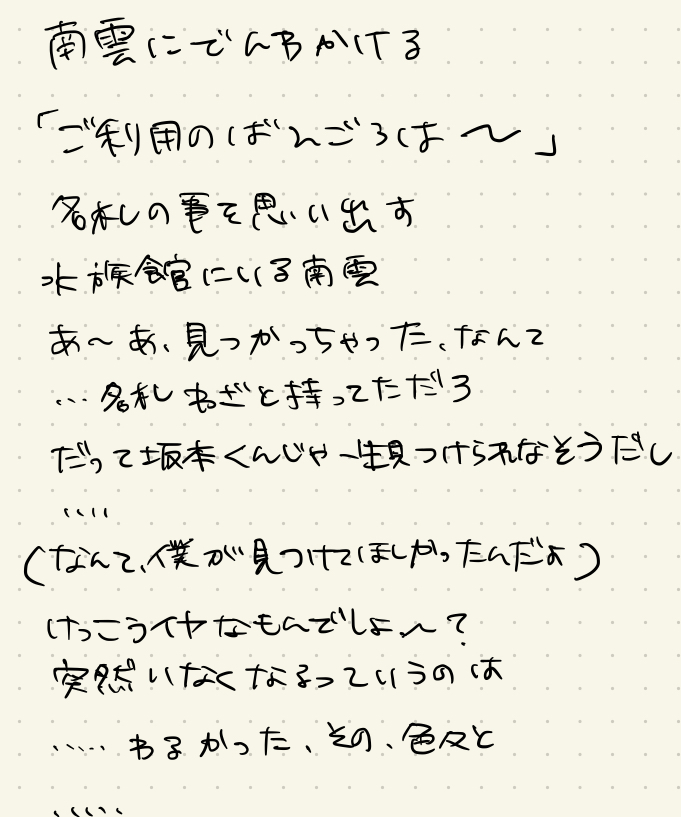 南雲にでんわかける
「ご利用のばんごうは〜」
名札の事を思い出す
水族館にいる南雲
あ〜あ、見つかっちゃった、なんて
…名札わざと持ってただろ
だって坂本くんじゃ一生見つけられなそうだし
‥‥
(なんて、僕が見つけてほしかったんだよ)
けっこうイヤなもんでしょ〜?
突然いなくなるっていうのは
‥‥‥わるかった、その、色々と
‥‥‥